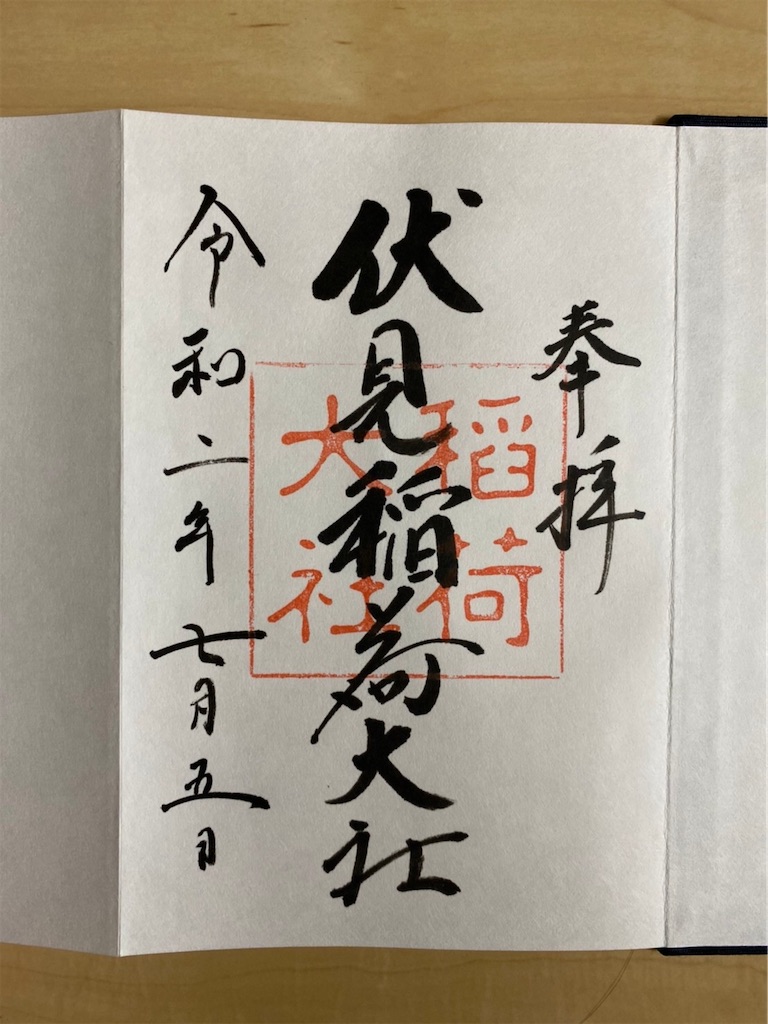 奉拝
伏見稲荷大社
稲荷
大社
令和二年七月五日